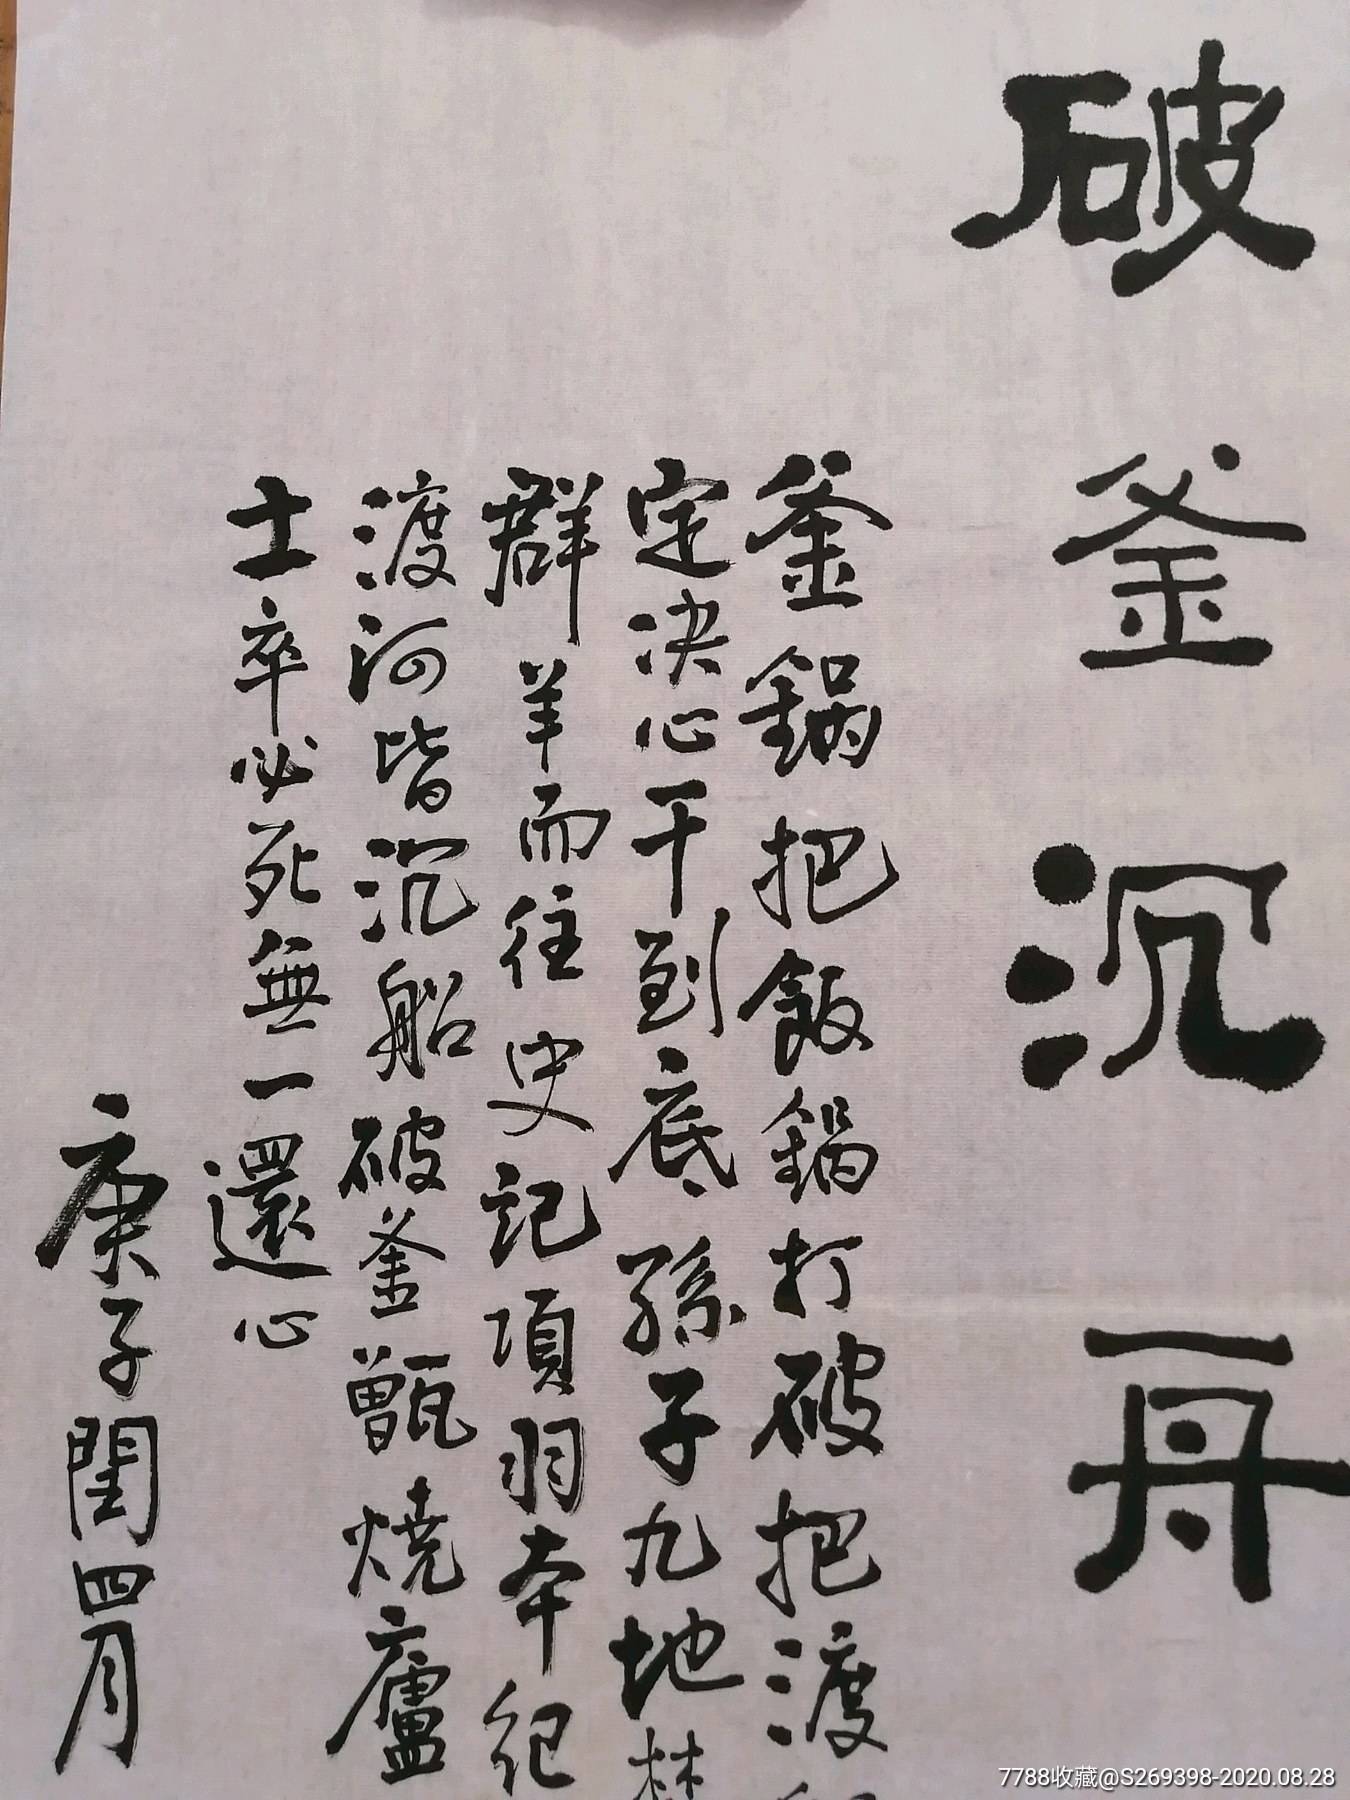 破釜沉舟
釜鍋把飯鍋打破把渡
定决心干到底孫子九地
群羊而往史記項羽本紀
渡河皆沉船破釜甑燒廬
士卒必死無一還心
庚子閏四月
7788收藏@S269398-2020.08.28